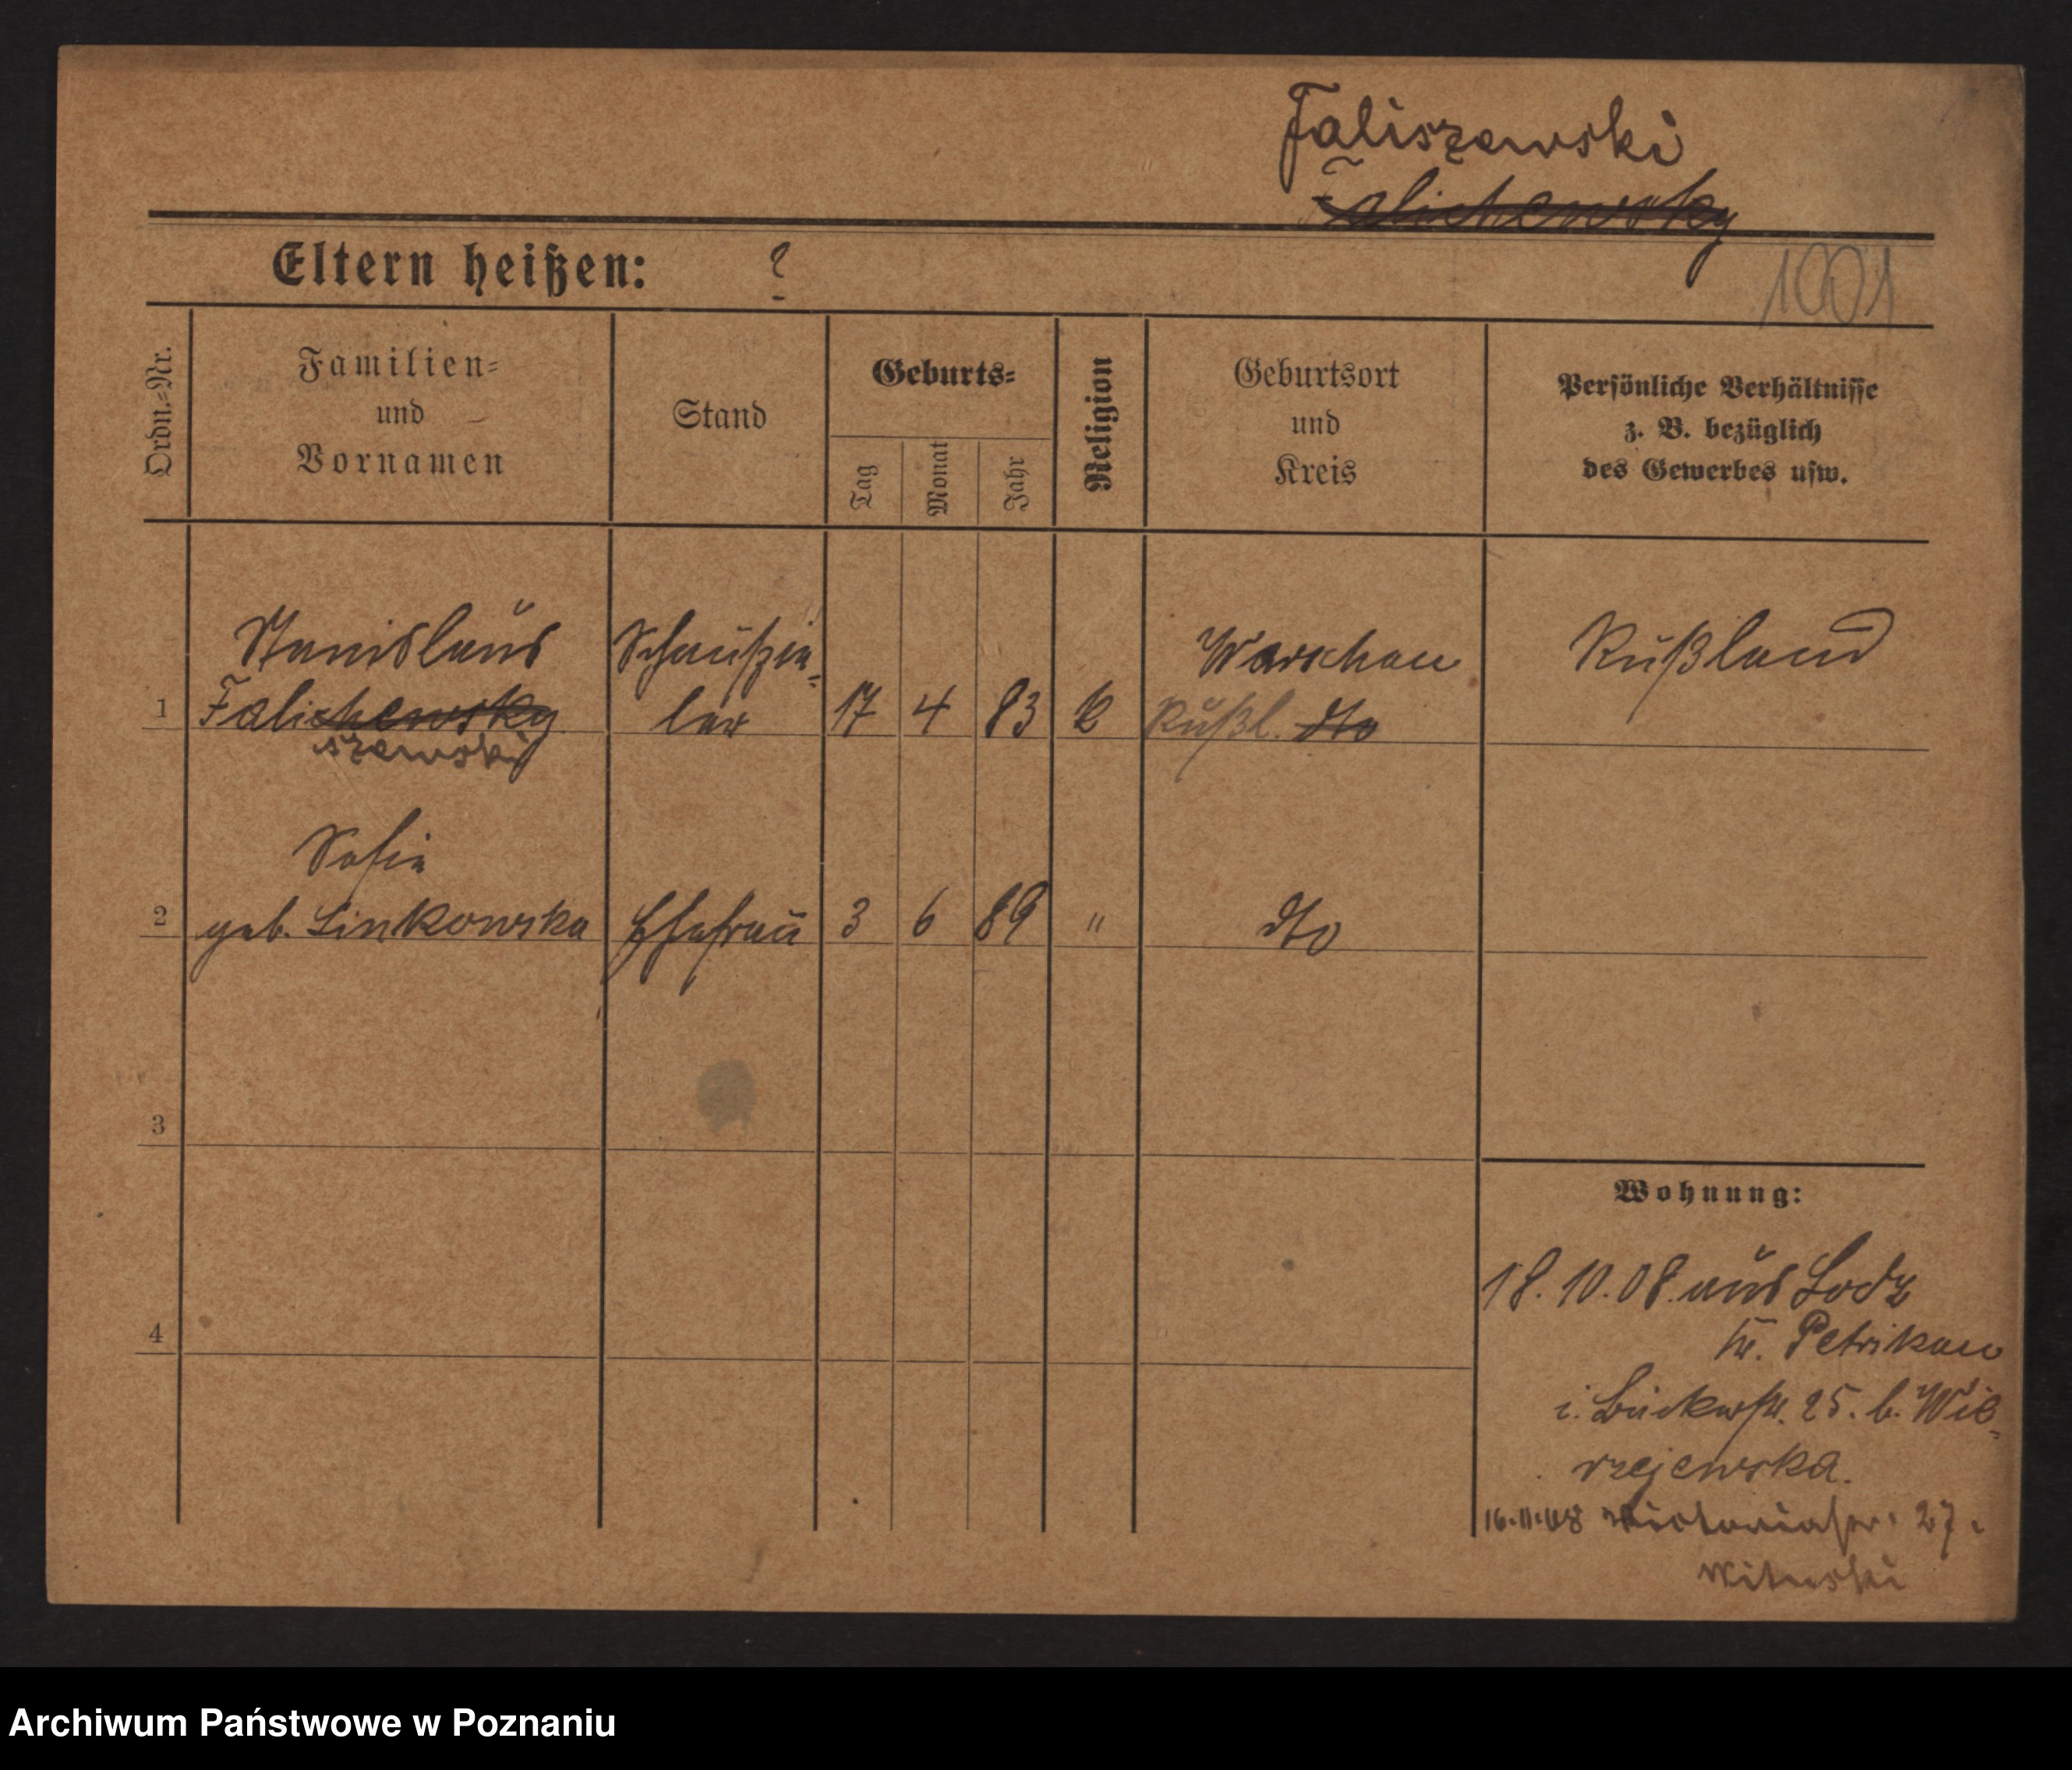 Faliszewski
Falichewsky
Eltern heißen: ?
1001
Ordn.=Nr.
Familien=
und
Vornamen
Stand
Geburts=
Tag
Monat
Jahr
Religion
Geburtsort
und
Kreis
Persönliche Verhältnisse
z. B. bezüglich
des Gewerbes usw.
Stanislaus Schauspie= Warschau Rußland
1 Falichewsky ler 17 4 83 k Rußl. dto
szewski
Sofie
2 geb. Linkowska Ehefrau 3 6 89 " dto
3
Wohnung:
18. 10. 08. aus Lodz
4
Kr. Petrikau
i. Bäckerstr. 25. b. Wie=
rzejewska.
16.11.08 Victoriastr. 27.
Archiwum Państwowe w Poznaniu